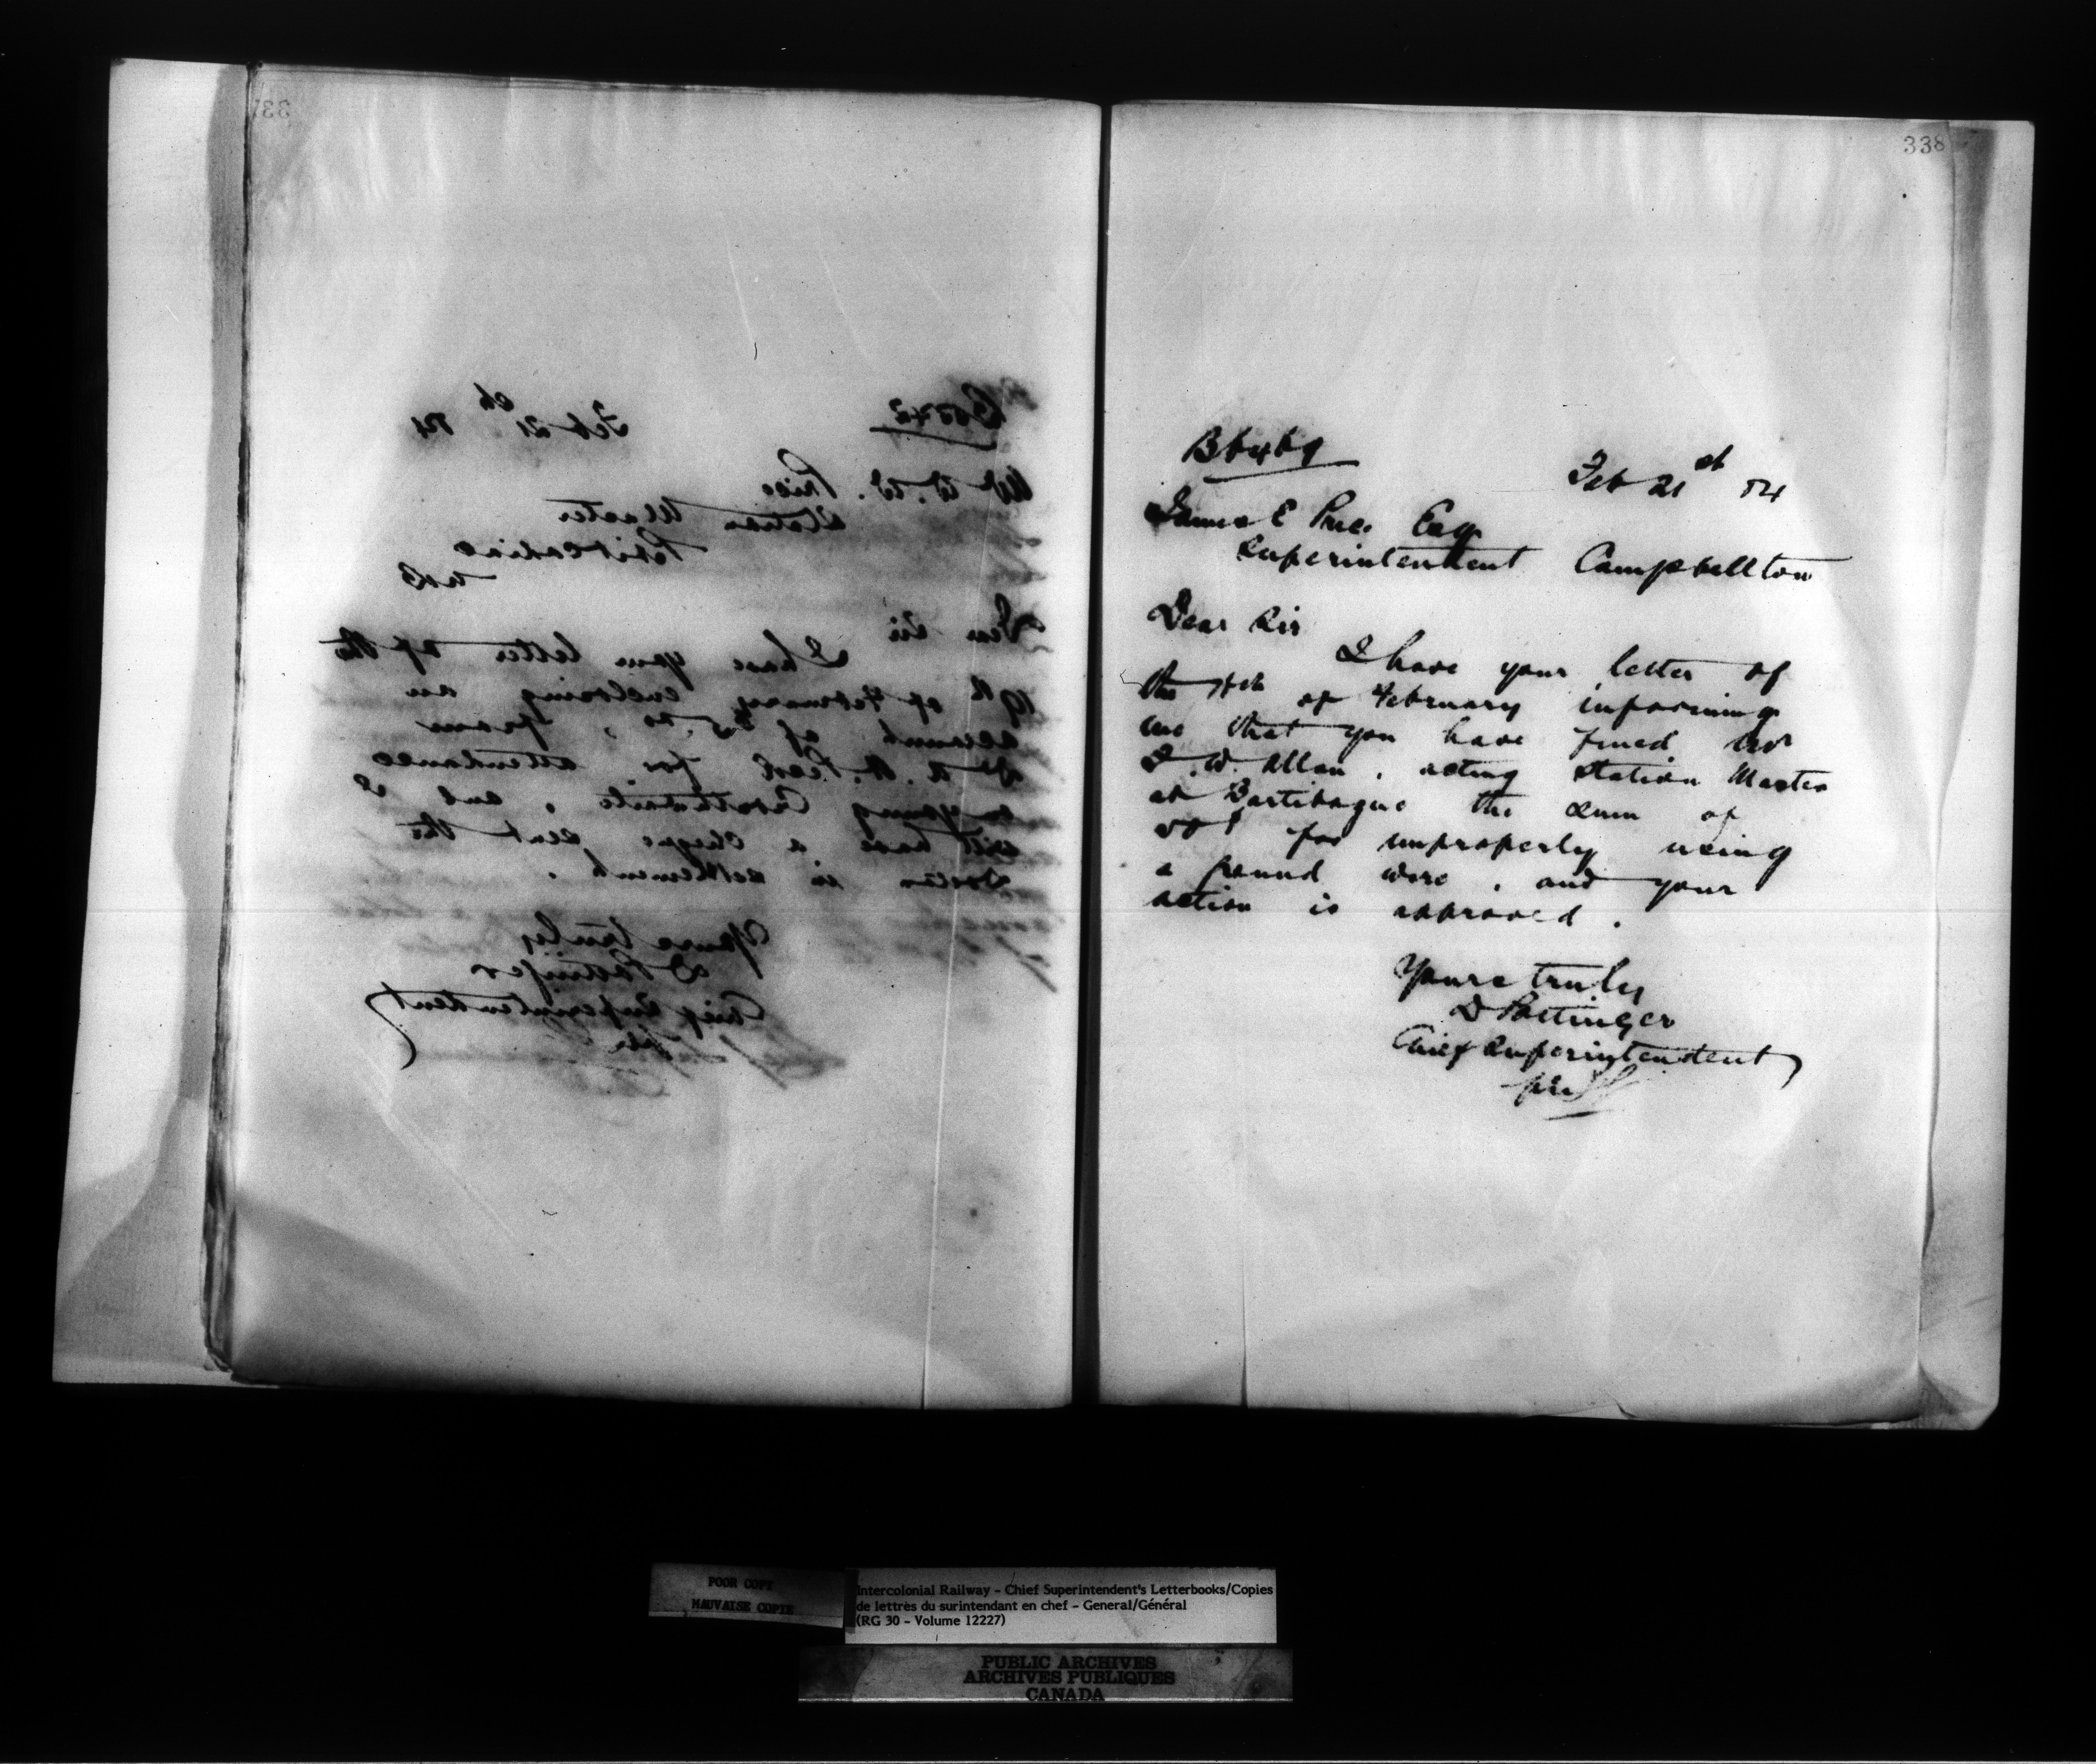 337
Feb 21st 84
Mr W. W. Price
Station Master
Petitcodiac
NB
Dear Sir
I have your letter of the
19th of February enclosing an
account of $5.00, from
Dr A. H. Peck for attendance
on young Crosthwaite, and I
will have a cheque sent the
Doctor in settlement.
Yours truly
D Pottinger
Chief Superintendent
338
B6469
Feb 21st 84
James E Price Esq
Superintendent Campbellton
Dear Sir
I have your letter of
the of February informing
me that you have fined Mr
W. Allan, acting Station Master
at Bartibogue the sum of
for improperly using
a ground wire, and your
action is approved.
Yours truly
D Pottinger
Chief Superintendent
POOR COPY
MAUVAISE COPIE
Intercolonial Railway - Chief Superintendent's Letterbooks/Copies
de lettres du surintendant en chef - General/Général
(RG 30 - Volume 12227)
PUBLIC ARCHIVES
ARCHIVES PUBLIQUES
CANADA